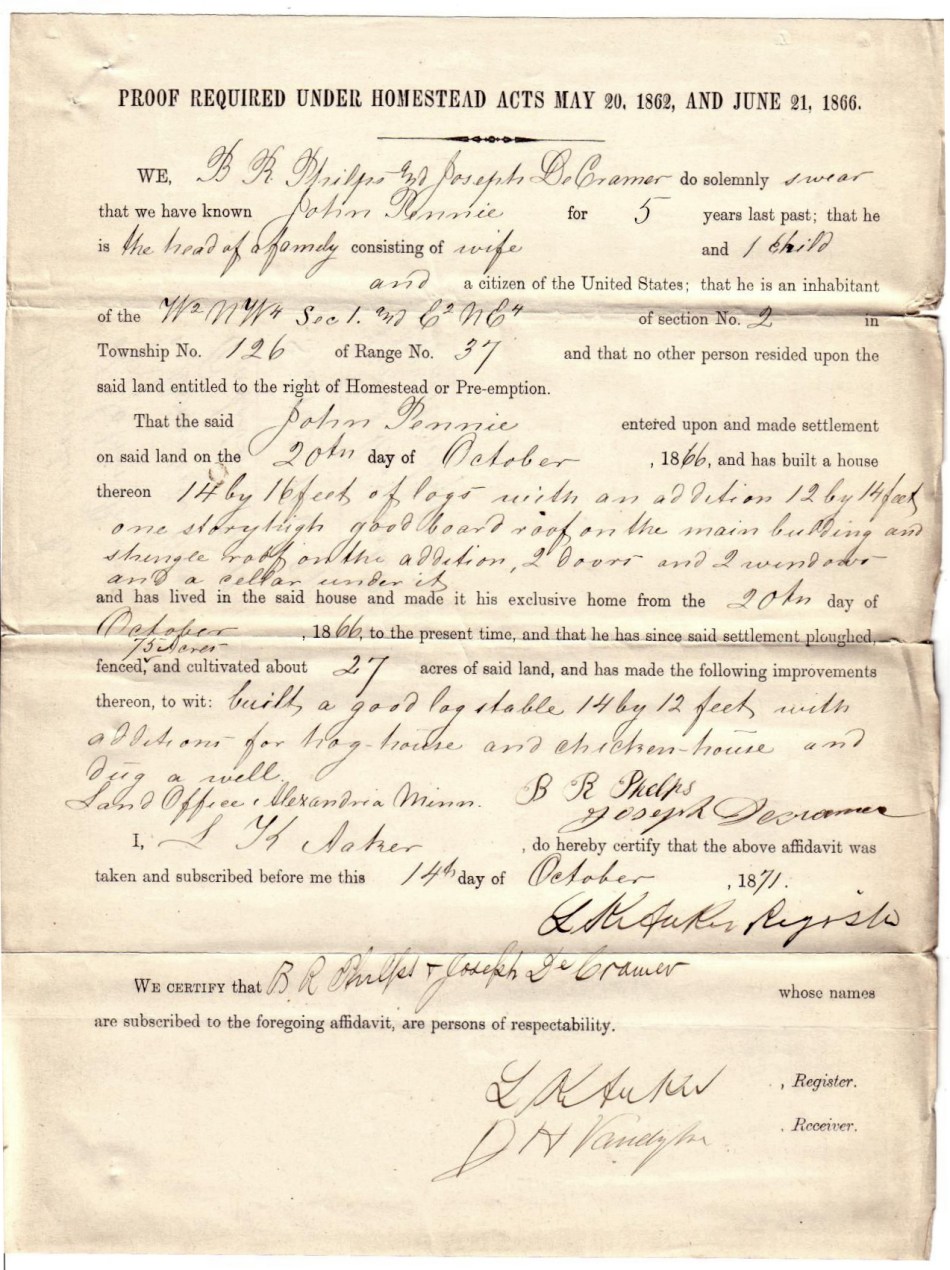 PROOF REQUIRED UNDER HOMESTEAD ACTS MAY 20, 1862, AND JUNE 21, 1866.
WE, B R Philps and Joseph DeCramer do solemnly swear
that we have known John Rennie for 5 years last past; that he
is the head of a family consisting of wife and 1 child
and a citizen of the United States; that he is an inhabitant
of the W2 NW4 Sec 1. and E2 NE4 of section No. 2 in
Township No. 126 of Range No. 37 and that no other person resided upon the
said land entitled to the right of Homestead or Pre-emption.
That the said John Rennie entered upon and made settlement
on said land on the 20th day of October , 1866, and has built a house
thereon 14 by 16 feet of logs with an addition 12 by 14 feet
one story high good board roof on the main building and
shingle roof on the addition, 2 doors and 2 windows
and a cellar under it
and has lived in the said house and made it his exclusive home from the 20th day of
October , 1866, to the present time, and that he has since said settlement ploughed,
75 Acres
fenced, and cultivated about 27 acres of said land, and has made the following improvements
thereon, to wit: built a good log stable 14 by 12 feet with
additions for hog-house and chicken-house and
dug a well.
Land Office Alexandria Minn. B R Phelps
Joseph Decramer
I, L K Aaker , do hereby certify that the above affidavit was
taken and subscribed before me this 14th day of October , 1871.
L K Aaker Register
WE CERTIFY that B R Phelps + Joseph De Cramer whose names
are subscribed to the foregoing affidavit, are persons of respectability.
L K Aaker , Register.
D H Vandyke . Receiver.